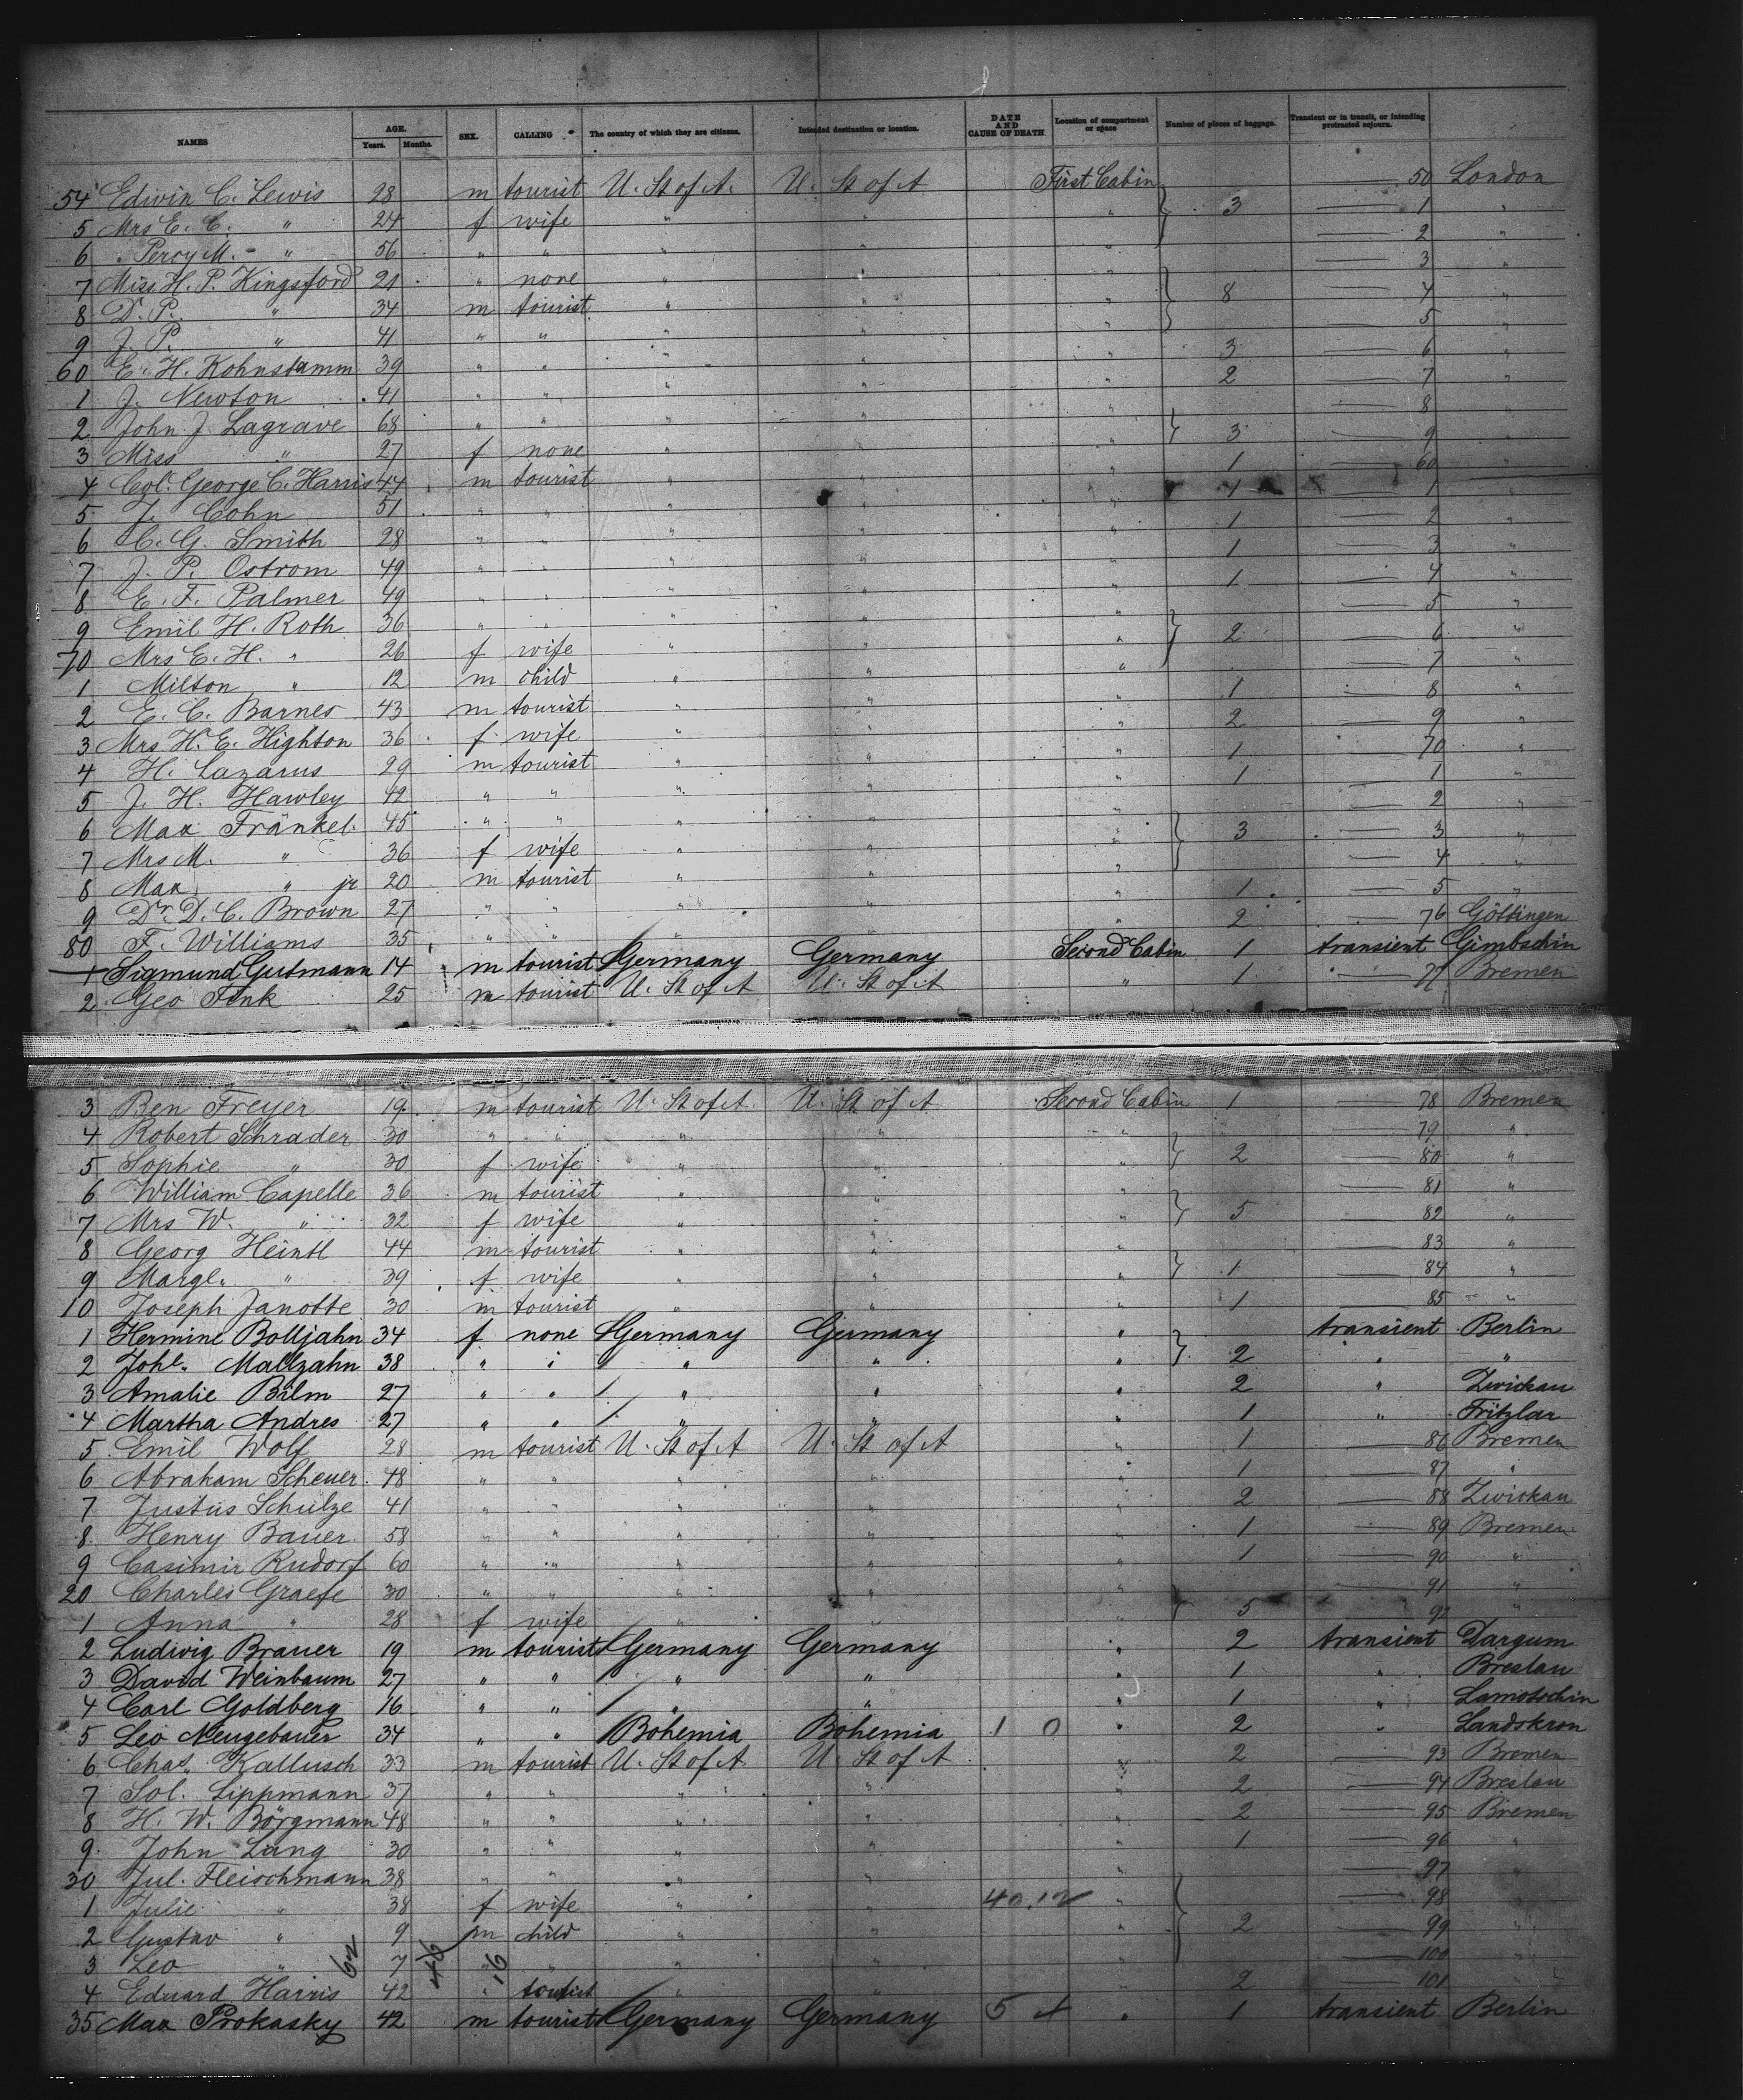 NAMES AGE. Years. Months. SEX. CALLING The country of which they are citizens. Intended destination or location. DATE AND CAUSE OF DEATH Location of compartment or space Number of pieces of baggage. Transient or in transit, or intending protracted sojourn.
54 Edwin C. Lewis 28 m tourist U. St of A. U. St of A First Cabin — 50 London
5 Mrs E. C. " 24 f wife " " " 3 — 1 "
6 " Percy M. " 56 " " " " " — 2 "
7 Miss H. P. Kingsford 21 " none " " " — 3 "
8 D. P. " 34 m tourist " " " 8 — 4 "
9 J. P. " 41 " " " " " — 5 "
60 E. H. Kohnstamm 39 " " " " " 3 — 6 "
1 J. Newton 41 " " " " " 2 — 7 "
2 John J. Lagrave 68 " " " " " — 8 "
3 Miss " 27 f none " " " 3 — 9 "
4 Col. George C. Harris 44 m tourist " " " 1 — 60 "
5 J. Cohn 51 " " " " " 1 — 1 "
6 C. G. Smith 28 " " " " " 1 — 2 "
7 J. P. Ostrom 49 " " " " " 1 — 3 "
8 E. F. Palmer 49 " " " " " 1 — 4 "
9 Emil H. Roth 36 " " " " " — 5 "
70 Mrs E. H. " 26 f wife " " " 2 — 6 "
1 Milton " 12 m child " " " — 7 "
2 E. C. Barnes 43 m tourist " " " 1 — 8 "
3 Mrs H. E. Highton 36 f wife " " " 2 — 9 "
4 H. Lazarus 29 m tourist " " " 1 — 70 "
5 J. H. Hawley 42 " " " " " 1 — 1 "
6 Max Fränkel 45 " " " " " — 2 "
7 Mrs M. " 36 f wife " " " 3 — 3 "
8 Max " jr 20 m tourist " " " — 4 "
9 Dr. D. C. Brown 27 " " " " " 1 — 5 "
80 F. Williams 35 " " " " " 2 — 76 Göttingen
1 Sigmund Gutmann 14 m tourist Germany Germany Second Cabin 1 transient Gimbschin
2 Geo Fink 25 m tourist U. St of A U. St of A " 1 — 77 Bremen
3 Ben Freyer 19 m tourist U. St of A. U. St of A Second Cabin 1 — 78 Bremen
4 Robert Schrader 30 " " " " " — 79 "
5 Sophie " 30 f wife " " " 2 — 80 "
6 William Capelle 36 m tourist " " " — 81 "
7 Mrs W. " 32 f wife " " " 5 — 82 "
8 Georg Heintl 44 m tourist " " " — 83 "
9 Margt. " 39 f wife " " " 1 — 84 "
10 Joseph Janotte 30 m tourist " " " 1 — 85 "
1 Hermine Bolljahn 34 f none Germany Germany " transient Berlin
2 Johe. Mallzahn 38 " " " " " 2 " "
3 Amalie Bälm 27 " " " " " 2 " Zwickau
4 Martha Andres 27 " " " " " 1 " Fritzlar
5 Emil Wolf 28 m tourist U. St of A U. St of A " 1 — 86 Bremen
6 Abraham Scheuer 48 " " " " " 1 — 87 "
7 Justus Schulze 41 " " " " " 2 — 88 Zwickau
8 Henry Bauer 58 " " " " " 1 — 89 Bremen
9 Casimir Rudorf 60 " " " " " 1 — 90 "
20 Charles Graefe 30 " " " " " — 91 "
1 Anna " 28 f wife " " " 5 — 92 "
2 Ludwig Brauer 19 m tourist Germany Germany " 2 transient Dargum
3 David Weinbaum 27 " " " " " 1 " Breslau
4 Carl Goldberg 16 " " " " " 1 " Lamotschin
5 Leo Neugebauer 34 " " Bohemia Bohemia 1 0 " 2 " Landskron
6 Chas. Kallusch 33 m tourist U. St of A U. St of A " 2 — 93 Bremen
7 Sol. Lippmann 37 " " " " " 2 — 94 Breslau
8 H. W. Börgmann 48 " " " " " 2 — 95 Bremen
9 John Lang 30 " " " " " 1 — 96 "
30 Jul. Fleischmann 38 " " " " " — 97 "
1 Julie " 38 f wife " " " — 98 "
2 Gustav " 9 m child " " " 2 — 99 "
3 Leo " 7 " " " " " — 100 "
62 46 16
4 Eduard Harris 42 " tourist " " " 2 — 101 "
35 Max Prokasky 42 m tourist Germany Germany 5 " 1 transient Berlin